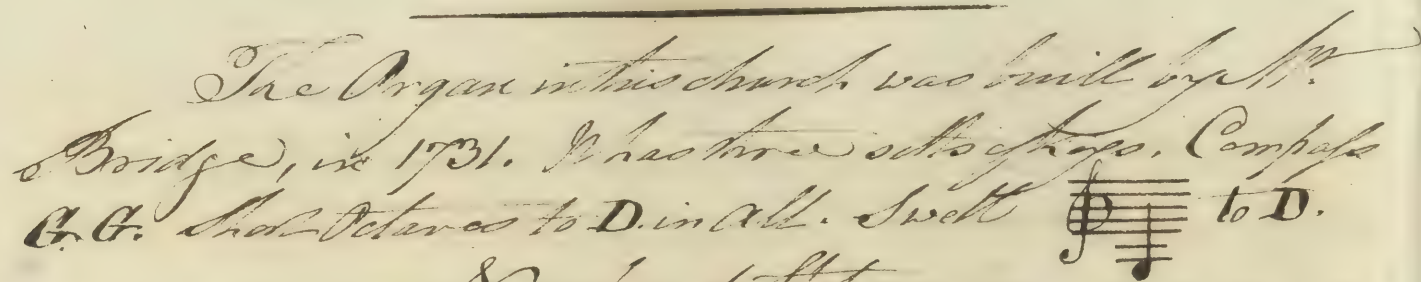 The Organ in this church was built by Mr.
Bridge, in 1731. It has three setts of keys. Compass
G.G. Short Octaves to D. in all. Swell to D.